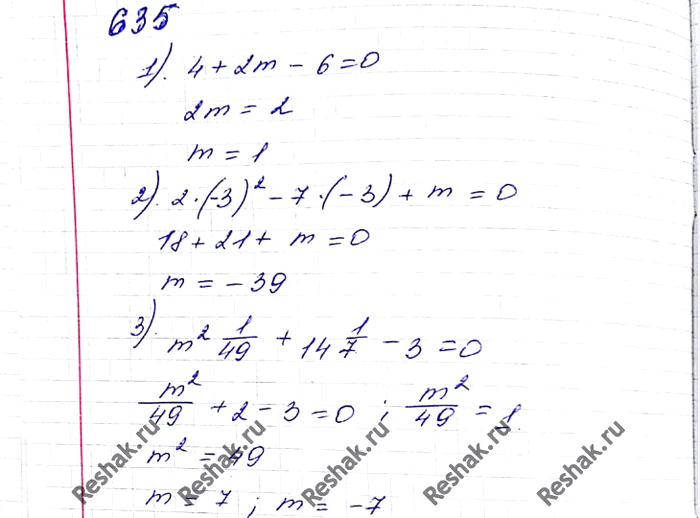 635
1). 4 + 2m - 6 = 0
2m = 2
m = 1
2). 2·(-3)² - 7·(-3) + m = 0
18 + 21 + m = 0
m = -39
3). m² 1/49 + 14 1/7 - 3 = 0
m²/49 + 2 - 3 = 0 ; m²/49 = 1
m² = 49
m = 7 ; m = -7
Reshak.ru Reshak.ru Reshak.ru Reshak.ru Reshak.ru